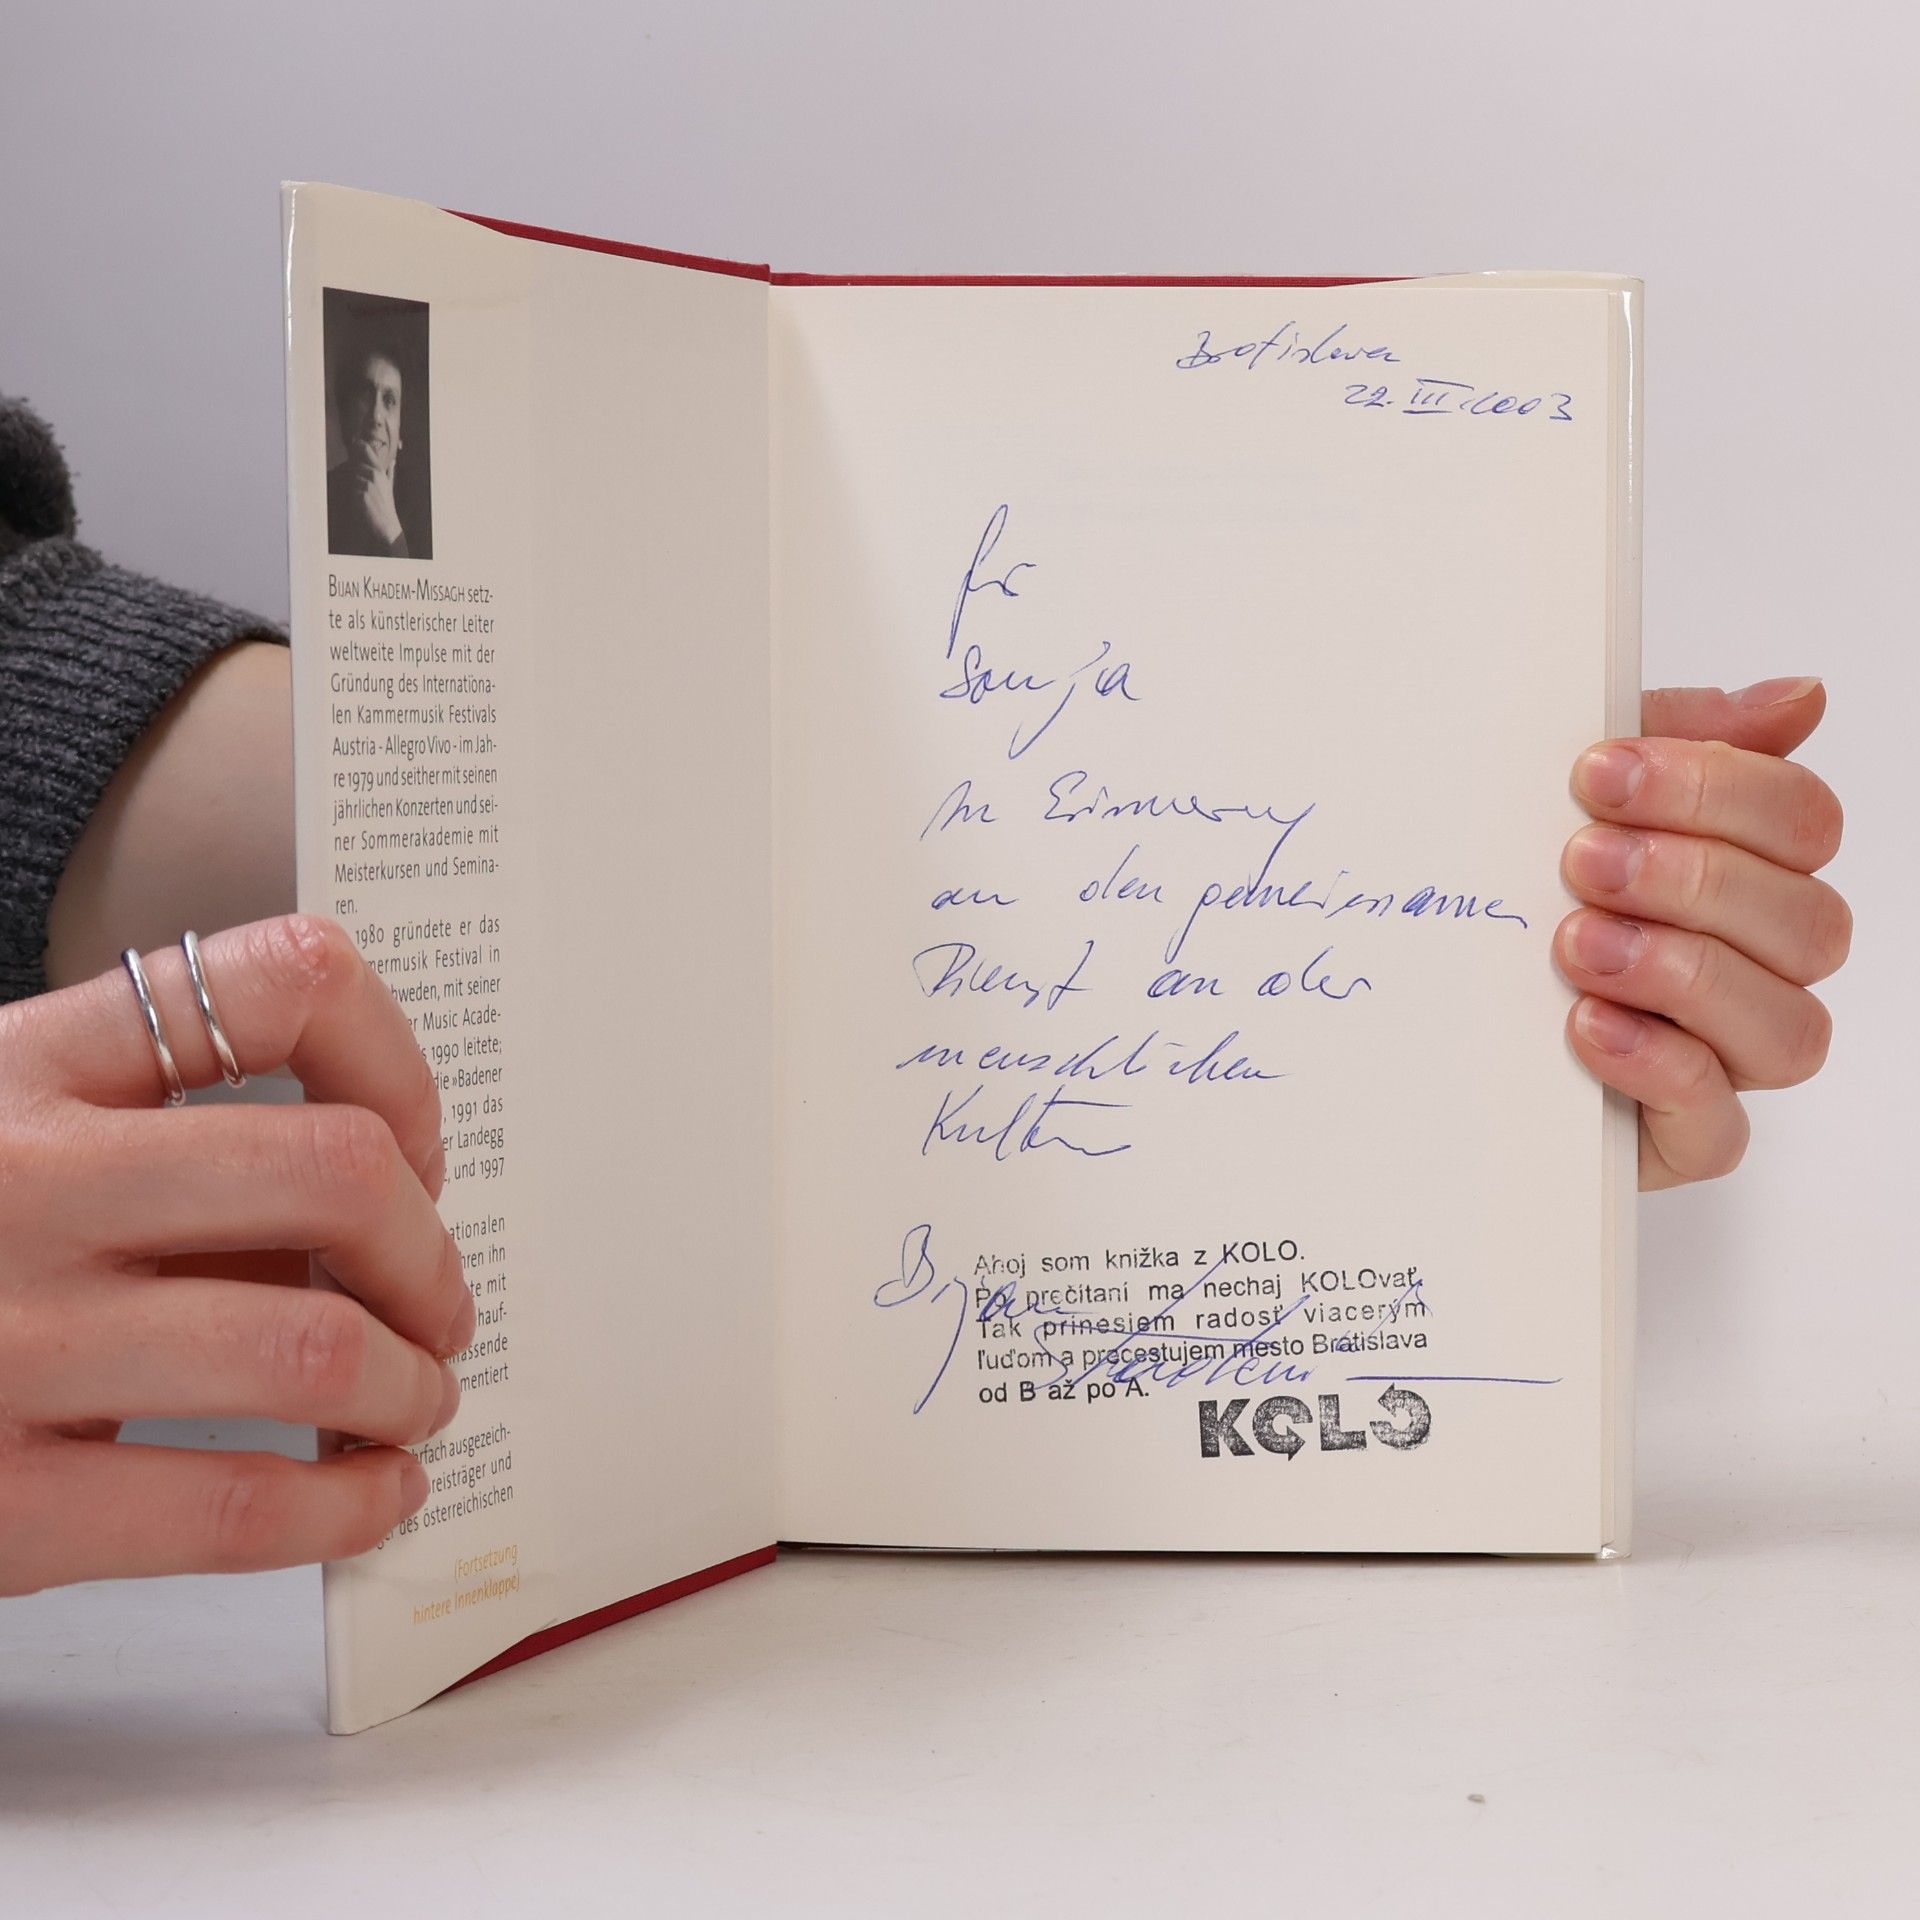 BIJAN KHADEM-MISSAGH setz-
te als künstlerischer Leiter
weltweite Impulse mit der
Gründung des Internationa-
len Kammermusik Festivals
Austria - Allegro Vivo - im Jah-
re 1979 und seither mit seinen
jährlichen Konzerten und sei-
ner Sommerakademie mit
Meisterkursen und Semina-
ren.
1980 gründete er das
mermusik Festival in
weden, mit seiner
r Music Acade-
s 1990 leitete;
die »Badener
, 1991 das
er Landegg
, und 1997
ationalen
hren ihn
te mit
hauf-
assende
mentiert
rfach ausgezeich-
reisträger und
ger des österreichischen
(Fortsetzung
hintere Innenklappe)
Bratislava
22. III. 2003
für
Sonja
In Erinnerung
an den gemeinsamen
Dienst an der
menschlichen
Kultur
Bijan
Ahoj som knižka z KOLO.
Po prečítaní ma nechaj KOLOvať.
Tak prinesiem radosť viacerým
ľuďom a precestujem mesto Bratislava
od B až po A.
KOLO